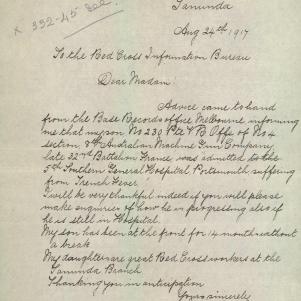 x 332-45 Sec.
Tanunda
Aug 24th 1917
To the Red Cross Information Bureau
Dear Madam
Advice came to hand
from the Base Records office Melbourne informing
me that my son No 230 Pte V B Offe of No 4
section 8th Australian Machine Gun Company
late 32nd Battalion France was admitted to the
5th Southern General Hospital Portsmouth suffering
from Trench Fever.
I will be very thankful indeed if you will please
make enquiries of how he is progressing also if
he is still in Hospital.
My son has been at the front for 14 month without
a break
My daughters are great Red Cross workers at the
Tanunda Branch
Thanking you in anticipation
Yours sincerely